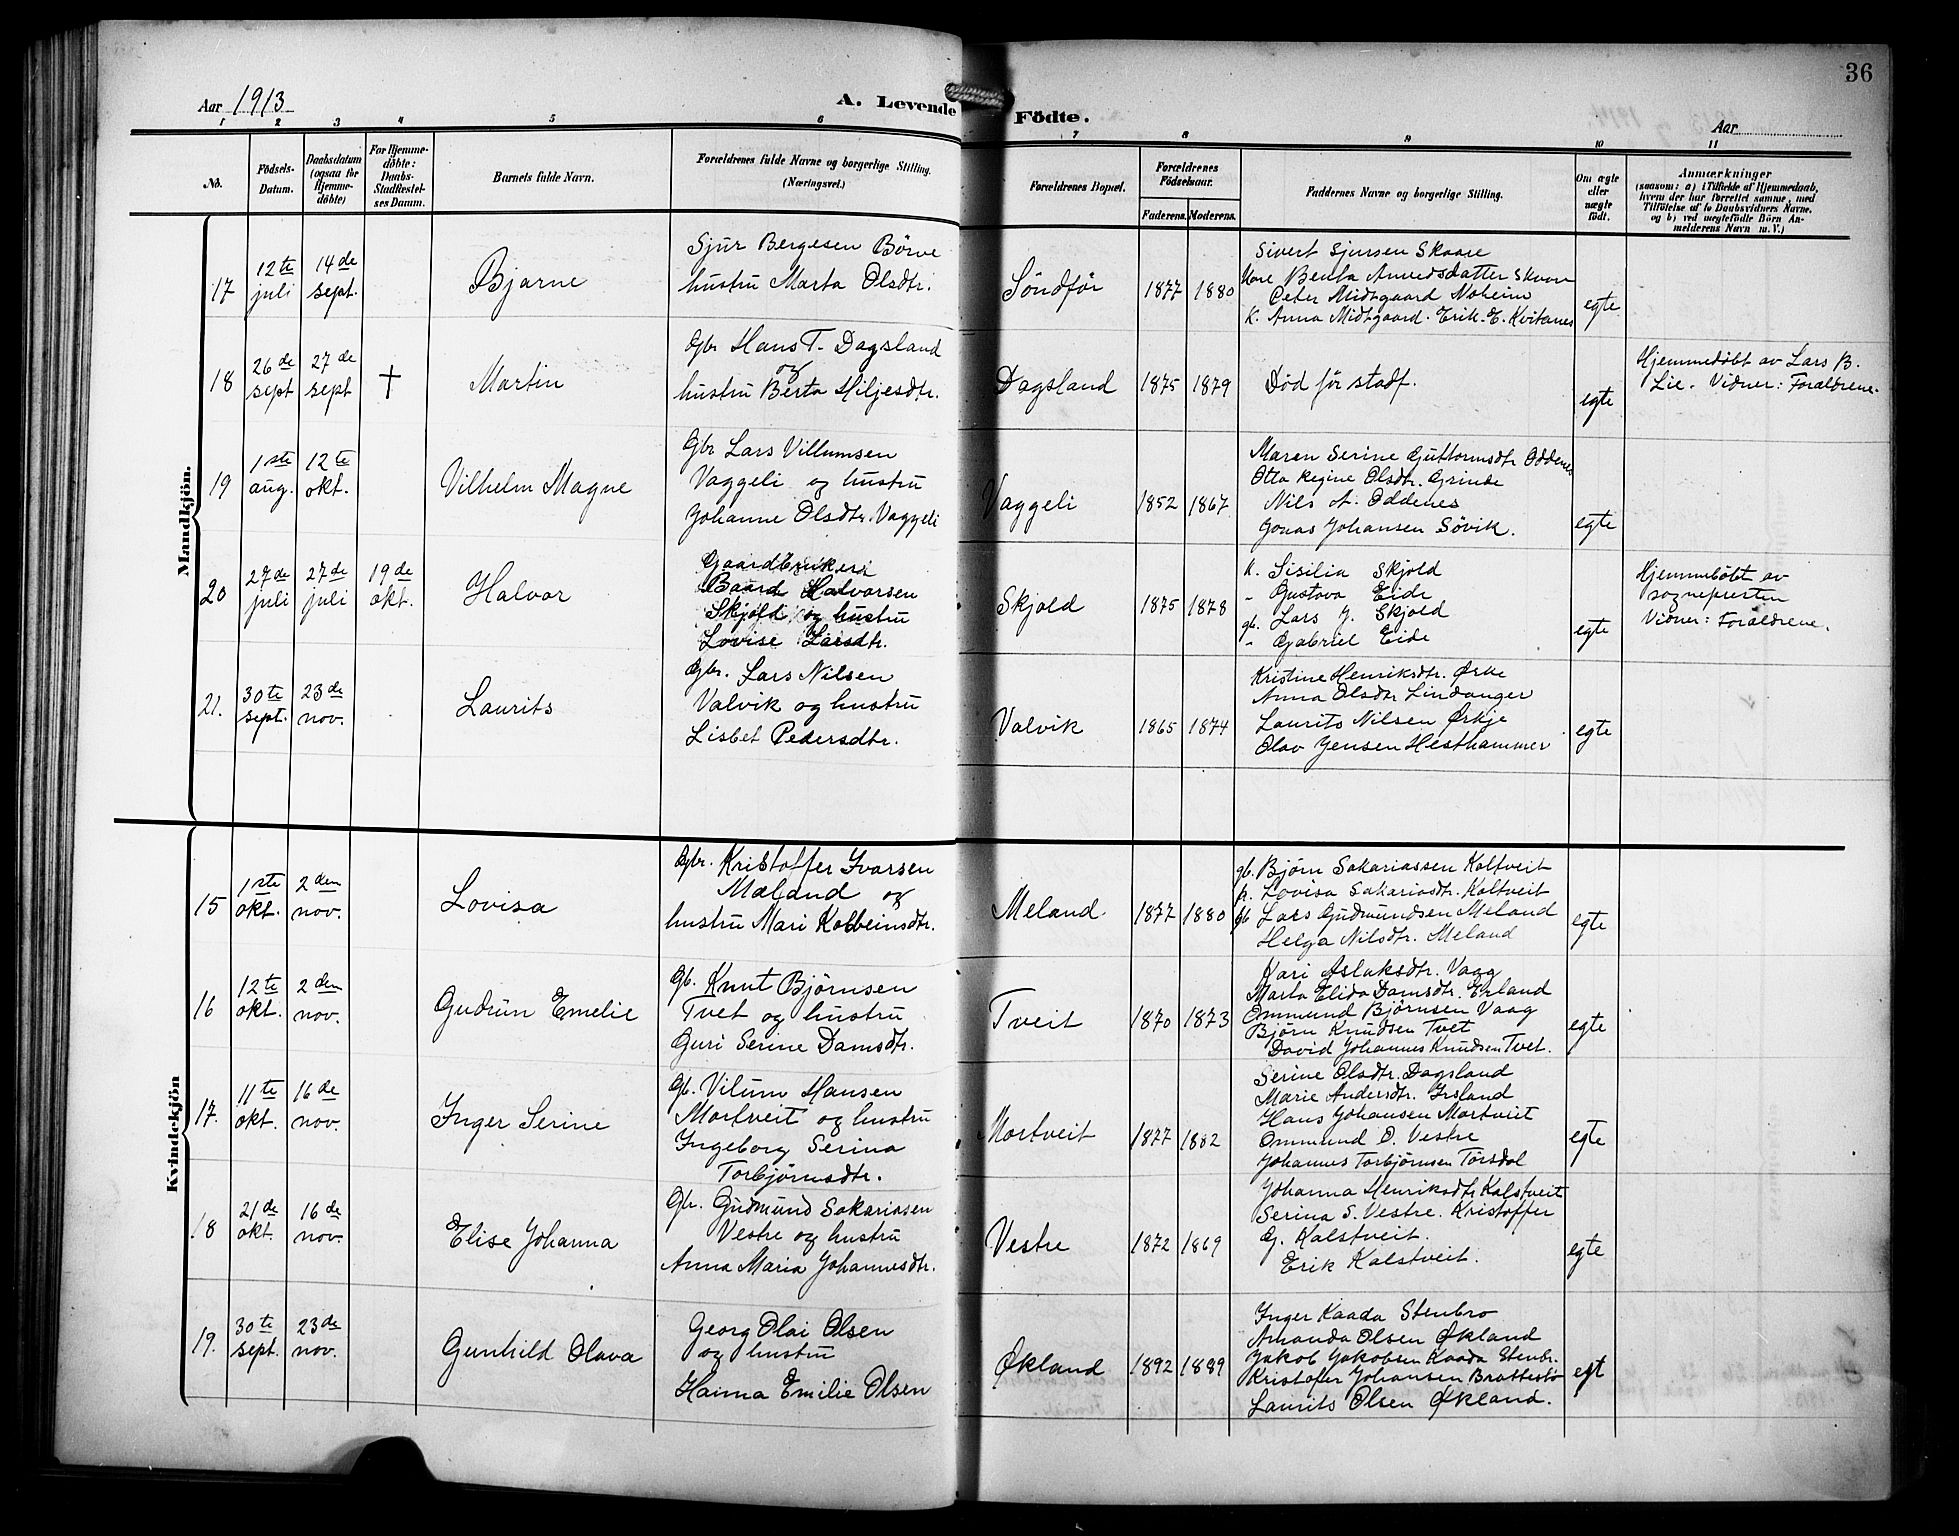 36
Aar 1913
A. Levende Födte.
Aar
1 2 3 4 5 6 7 8 9 10 11
No.
Födsels-
Datum.
Daabsdatum
(ogsaa for
Hjemme-
döbte)
For Hjemme-
döbte:
Daabs-
Stadfæstel-
ses Datum.
Barnets fulde Navn.
Forældrenes fulde Navne og borgerlige Stilling.
(Næringsvei.)
Forældrenes Bopæl.
Forældrenes
Födselsaar.
Faderens. Moderens.
Faddernes Navne og borgerlige Stilling.
Om ægte
eller
uægte
født.
Anmærkninger
(saasom: a) i Tilfælde af Hjemmedaab,
hvem der har forrettet samme, med
Tilföielse af to Daabsvidners Navne.
og b) ved uægtefödte Börn An-
melderens Navn m. V.)
Mandkjön.
17
12te
juli
14de
sept.
Bjarne
Sjur Bergesen Börve
hustru Marta Olsdtr.
Söndför
1877
1880
Sivert Sjursen Skaare
Kone Benta Anvedsdatter Skaare
Peter Midtgaard Noheim
K. Anna Midtgaard. Erik E. Kvitanes
egte
18
26de
sept
27de
sept
†
Martin
Gbr Hans T. Dagsland
og
hustru Berta Hiljesdtr.
Dagsland
1875
1879
Död för stadf.
egte
Hjemmedöbt av Lars B.
Lie. Vidner: Forældrene.
19
1ste
aug.
12te
okt.
Vilhelm Magne
Gbr Lars Villumsen
Vaggeli og hustru
Johanne Olsdtr. Vaggeli
Vaggeli
1852
1867
Maren Serine Guttormsdtr Oddenes
Otta Regine Olsdtr. Grinde
Nils A. Oddenes
Jonas Johansen Sövik.
egte
20
27de
juli
27de
juli
19de
okt.
Halvor
Gaardbruker
Baard Halvorsen
Skjold og hustru
Lovise Larsdtr.
Skjold
1875
1878
K. Sisilia Skjold
- Gustava Eide
gb. Lars J. Skjold
- Gabriel Eide
egte
Hjemmedöbt av
sogneprestén
Vidner: Forældrene.
21.
30te
sept.
23de
nov.
Laurits
Gbr. Lars Nilsen
Valvik og hustru
Lisbet Pedersdtr.
Valvik
1865
1874
Kristine Henriksdtr. Ørke
Anna Olsdtr Lindanger
Laurits Nilsen Ørkje
Olav Jensen Hesthammer
egte
Kvindekjön
15
1ste
okt.
2den
nov.
Lovisa
Gbr. Kristoffer Ivarsen
Mæland og
hustru Mari Kolbeinsdtr.
Meland.
1877
1880
gb. Björn Sakariassen Kaltveit
p. Lovisa Sakariasdtr. Kaltveit
gb Lars Gudmundsen Meland
Helga Nilsdtr. Meland
egte
16
12te
okt.
2den
nov.
Gudrun Emelie
Gb. Knut Björnsen
Tvet og hustru
Guri Serine Damsdtr.
Tveit
1870
1873
Kari Aslaksdtr. Vaag
Marta Elida Damsdtr. Erland
Ommund Björnsen Vaag
Björn Knudsen Tvet
David Johannes Knudsen Tvet.
egte
17.
11te
okt.
16de
nov.
Inger Serine
Gb. Vilum Hansen
Mortveit og hustru
Ingeborg Serina
Torbjörnsdtr.
Mortveit
1877
1882
Serine Olsdtr. Dagsland
Marie Andersdtr. Irsland
Hans Johansen Mortveit
Ommund O. Vestre
Johannes Torbjörnsen Torsdal
egte
18
21de
okt.
16de
nov.
Elise Johanna
Gbr. Gudmund Sakariasen
Vestre og hustru
Anna Maria Johannesdtr.
Vestre
1872
1869
Johanna Henriksdtr Kalstveit
Serina S. Vestre. Kristoffer
G. Kalstveit.
Erik Kalstveit.
egte
19.
30te
sept.
23de
nov.
Gunhild Olava
Georg Olai Olsen
og hustru
Hanna Emilie Olsen
Økland
1892
1889
Inger Kaada Stenbro
Amanda Olsen Økland
Jakob Jakobsen Kaada Stenbr.
Kristofer Johansen Brattestö
Laurits Olsen Økland.
egt